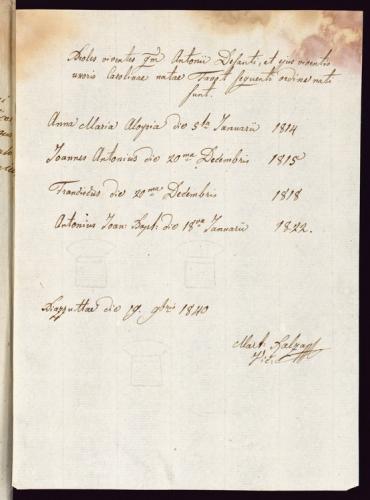 Proles viventes qm Antonii Defanti, et ejus viventis
uxoris Carolinae natae sequenti ordine nati
sunt.
Anna Maria Aloysia die 5ta Januarii 1814
Joannes Antonius die 20ma Decembris 1815
Franciscus die 20ma Decembris 1818
Antonius Joan: Bapt: die 18va Januarii 1822.
die 19. 9bris 1840
Mart.